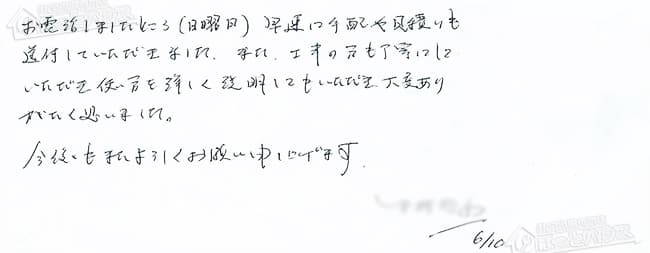 お電話しましたところ(日曜日)早速に手配や見積りも
送付していただきました。また、工事の方も丁寧にして
いただき使い方を詳しく説明してもいただき大変あり
がたく思いました。
今後ともまたよろしくお願い申し上げます。
6/10